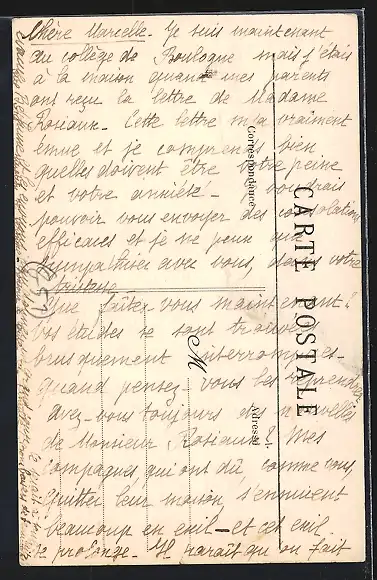 Chère Marcelle. Je suis maintenant
au collège de Boulogne mais j'étais
à la maison quand mes parents
ont reçu la lettre de Madame
Rosiaux. Cette lettre m'a vraiment
émue et je comprends bien
quelles doivent être votre peine
et votre anxiété. Je voudrais
pouvoir vous envoyer des consolations
efficaces et je ne peux que
sympathiser avec vous, dans votre
Que faites-vous maintenant?
Vos études se sont trouvées
brusquement interrompues.
Quand pensez-vous les reprendre
Avez-vous toujours des nouvelles
de Monsieur Rosiaux? Mes
compagnes qui ont dû, comme vous,
quitter leur maison, s'ennuient
beaucoup en exil - et cet exil
se prolonge. Il paraît qu'on fait
CARTE POSTALE
Correspondance
Adresse
M